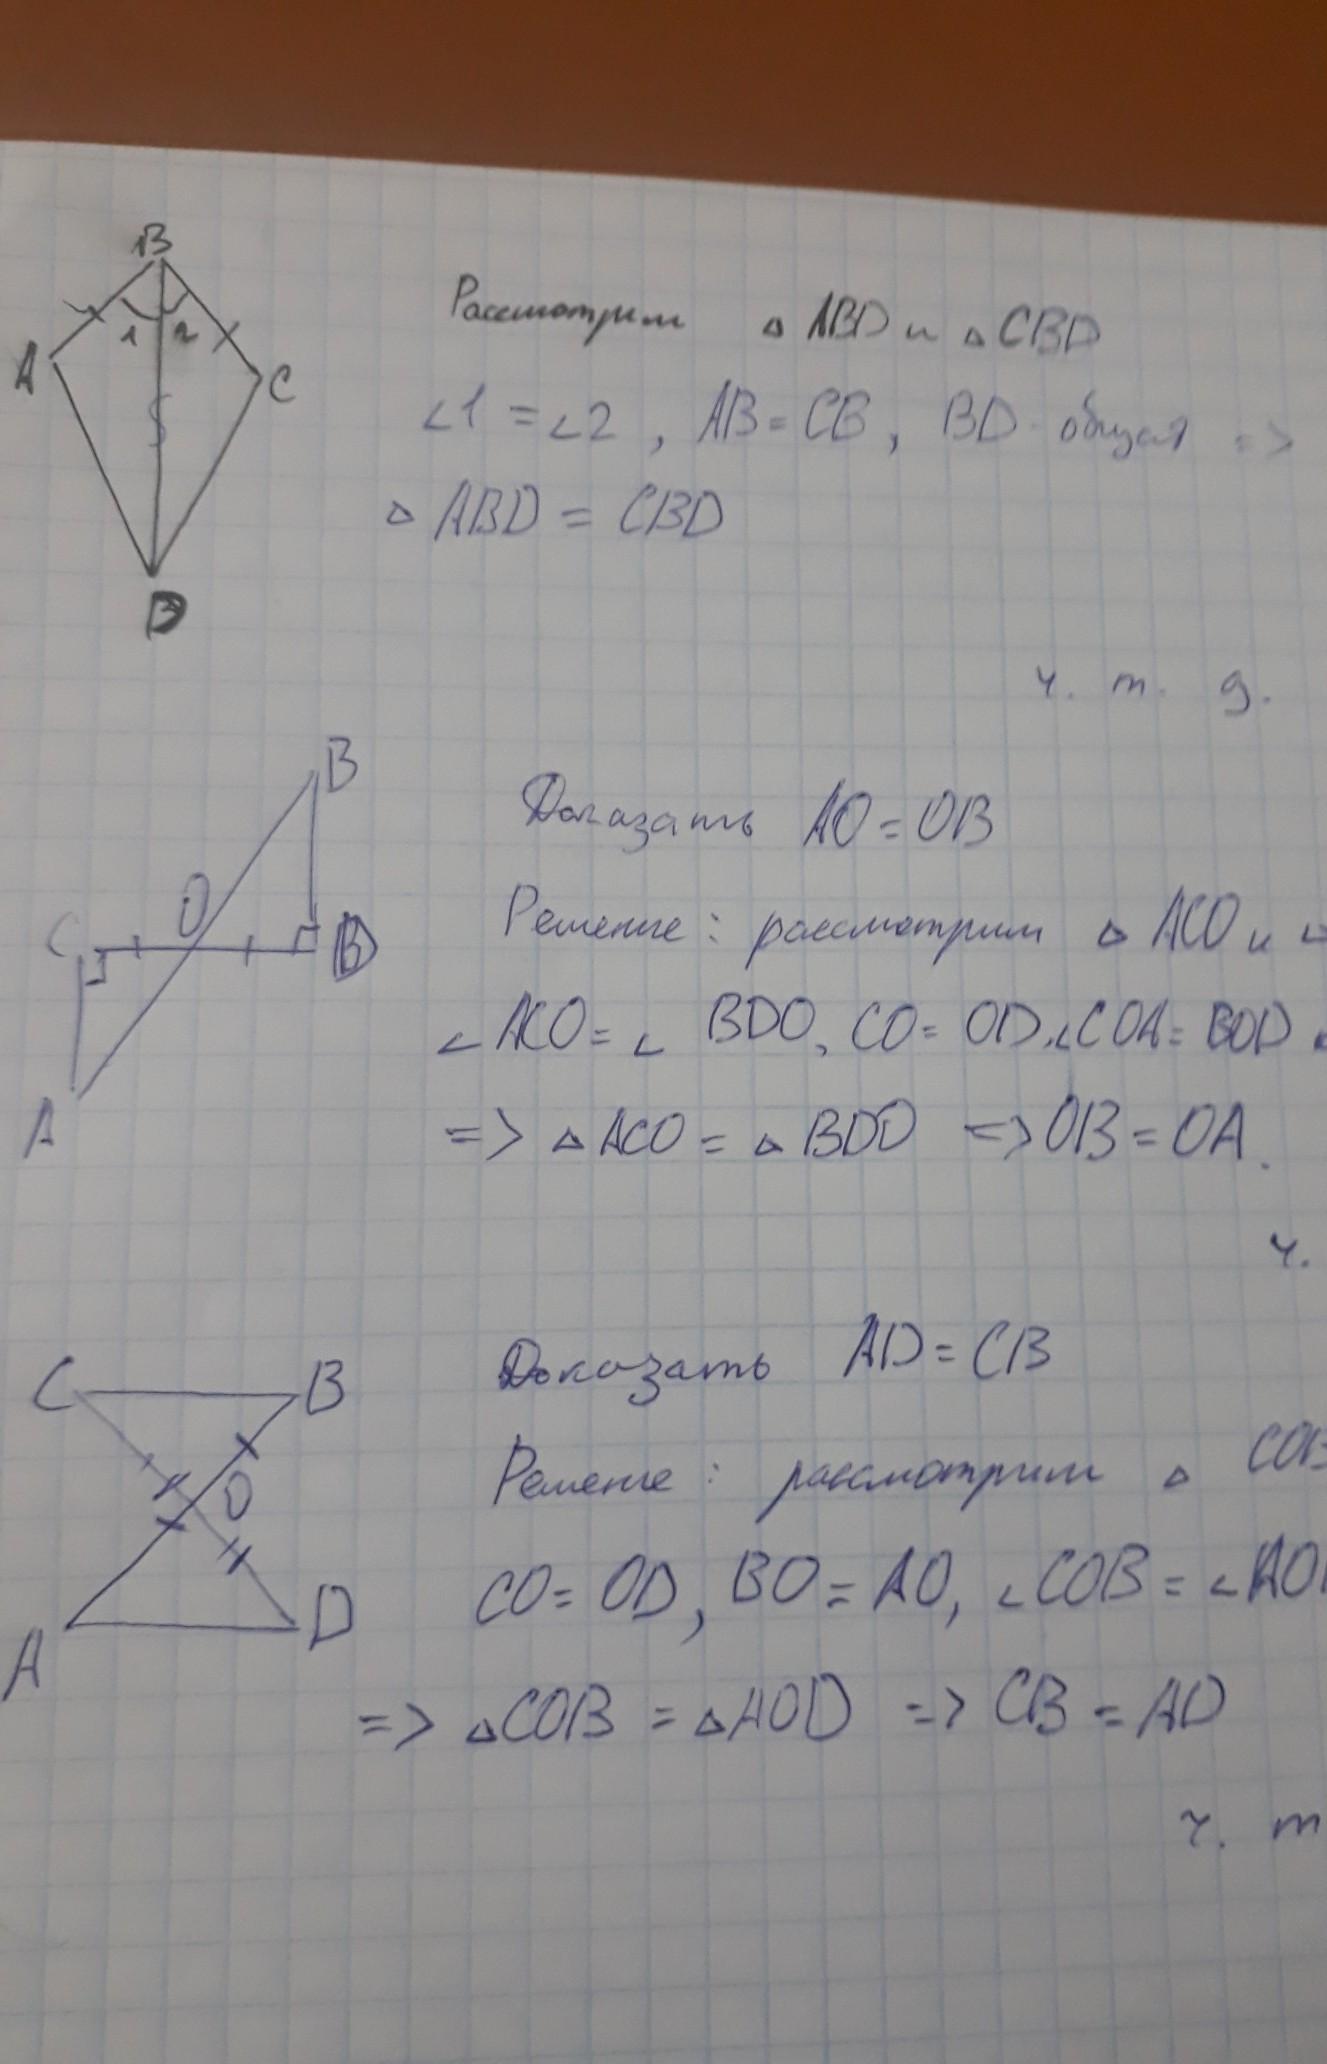 B
Рассмотрим △ ABD и △ CBD
1 2
A C
∠1 = ∠2, AB = CB, BD - общая =>
△ ABD = CBD
D
ч. т. д.
B
Доказать AO = OB
O
C D
Решение: рассмотрим △ ACO и △
∠ ACO = ∠ BDO, CO = OD, ∠COA = BOD
A
=> △ ACO = △ BDO => OB = OA.
ч.
Доказать AD = CB
C B
Решение: рассмотрим △ COB
O
CO = OD, BO = AO, ∠COB = ∠AOD
A D
=> △COB = △AOD => CB = AD
ч. т